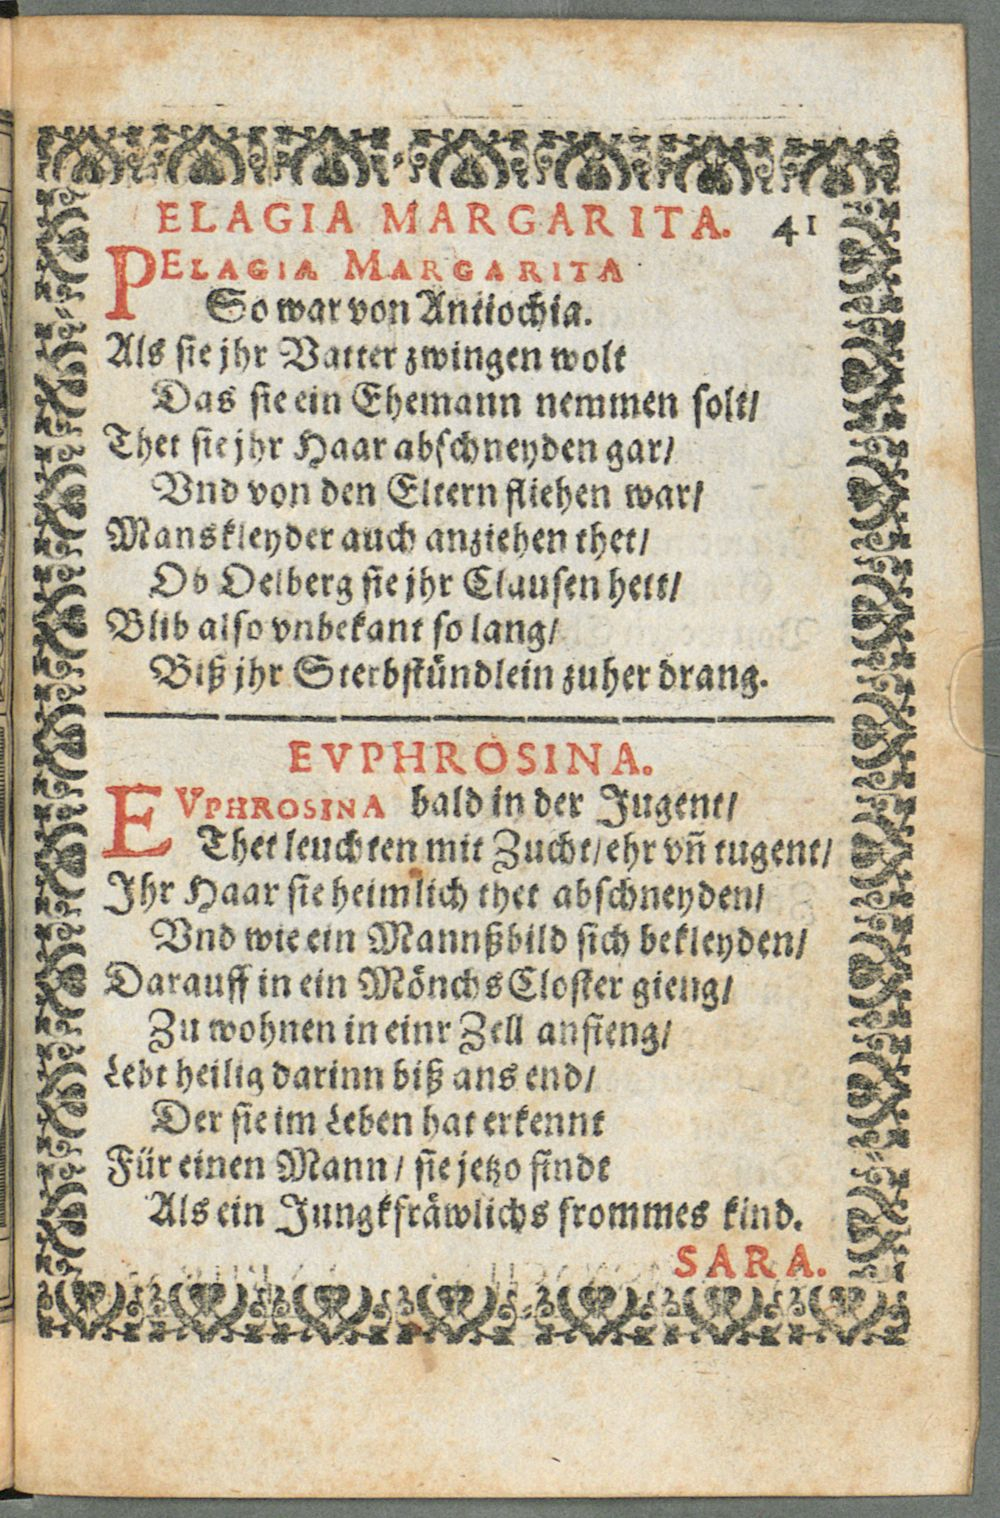 ELAGIA MARGARITA. 41
PELAGIA MARGARITA
So war von Antiochia.
Als sie jhr Vatter zwingen wolt
Das sie ein Ehemann nemmen solt/
Thet sie jhr Haar abschneyden gar/
Vnd von den Eltern fliehen war/
Manskleyder auch anziehen thet/
Ob Oelberg sie jhr Clausen hett/
Blib also vnbekant so lang/
Biß jhr Sterbstündlein zuher drang.
EVPHROSINA.
EVPHROSINA bald in der Jugent/
Thet leuchten mit Zucht/ehr vñ tugent/
Ihr Haar sie heimlich thet abschneyden/
Vnd wie ein Mannßbild sich bekleyden/
Darauff in ein Mönchs Closter gieng/
Zu wohnen in einr Zell anfieng/
Lebt heilig darinn biß ans end/
Der sie im Leben hat erkennt
Für einen Mann/ sie jetzo findt
Als ein Jungkfräwlichs frommes kind.
SARA.